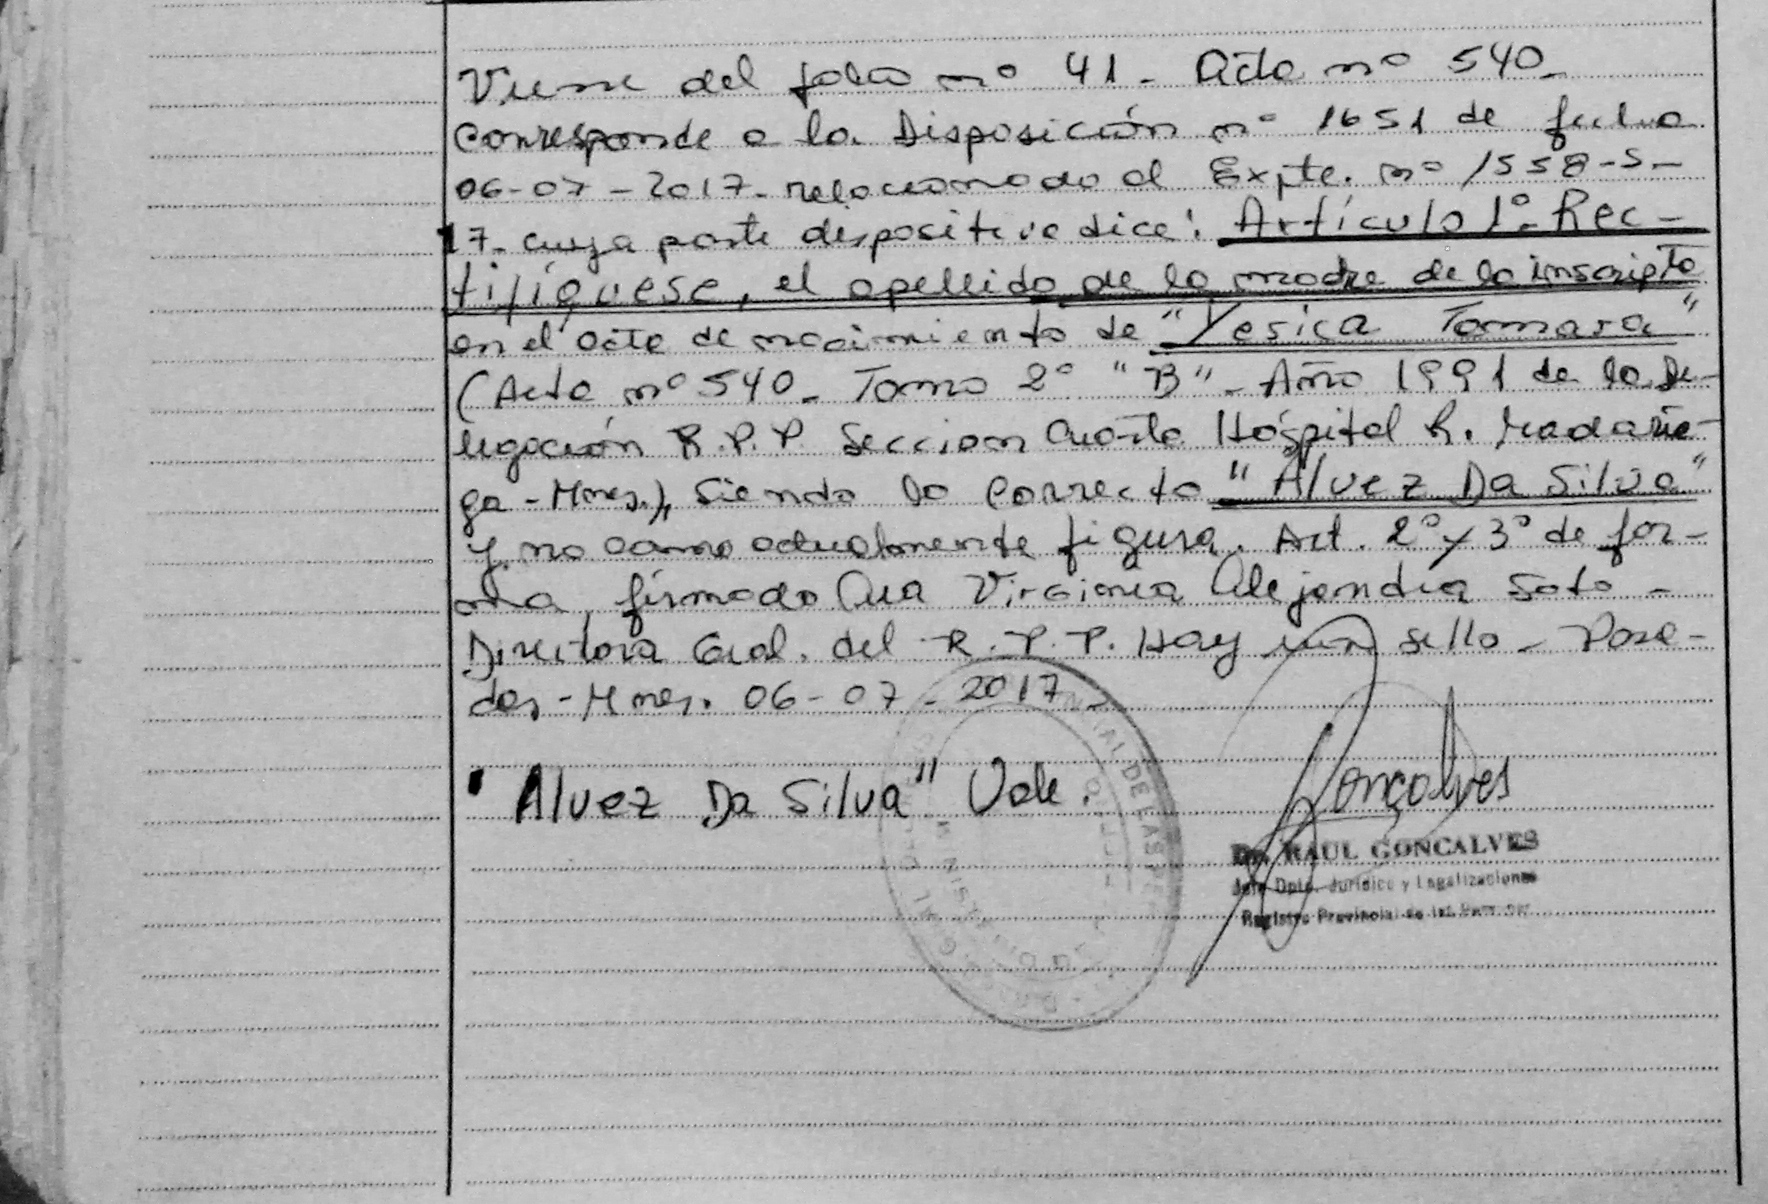 Viene del folio nº 41 - Acta nº 540 -
corresponde a la Disposición nº 1651 de fecha
06-07-2017- relacionado al Expte. nº 1558-S-
17- cuya parte dispositiva dice: Artículo 1º- Rec-
tifíquese, el apellido de la madre de la inscripta
en el acta de nacimiento de "Yesica Tamara"
(Acta nº 540- Tomo 2º "B"- Año 1991 de la De-
legación R.P.P. Seccion Cuarta Hospital R. Madaria-
ga - Mnes.), siendo lo correcto "Alvez Da Silva"
y no como actualmente figura. Art. 2º y 3º de for-
ma, firmado Virginia Alejandra Soto -
Directora Gral. del R.P.P. Hay un sello - Posa-
das - Mnes. 06-07-2017-
"Alvez Da Silva" Vale.
Gonçalves
Dr. RAUL GONCALVES
Jefe Dpto. Jurídico y Legalizaciones
Registro Provincial de las Personas